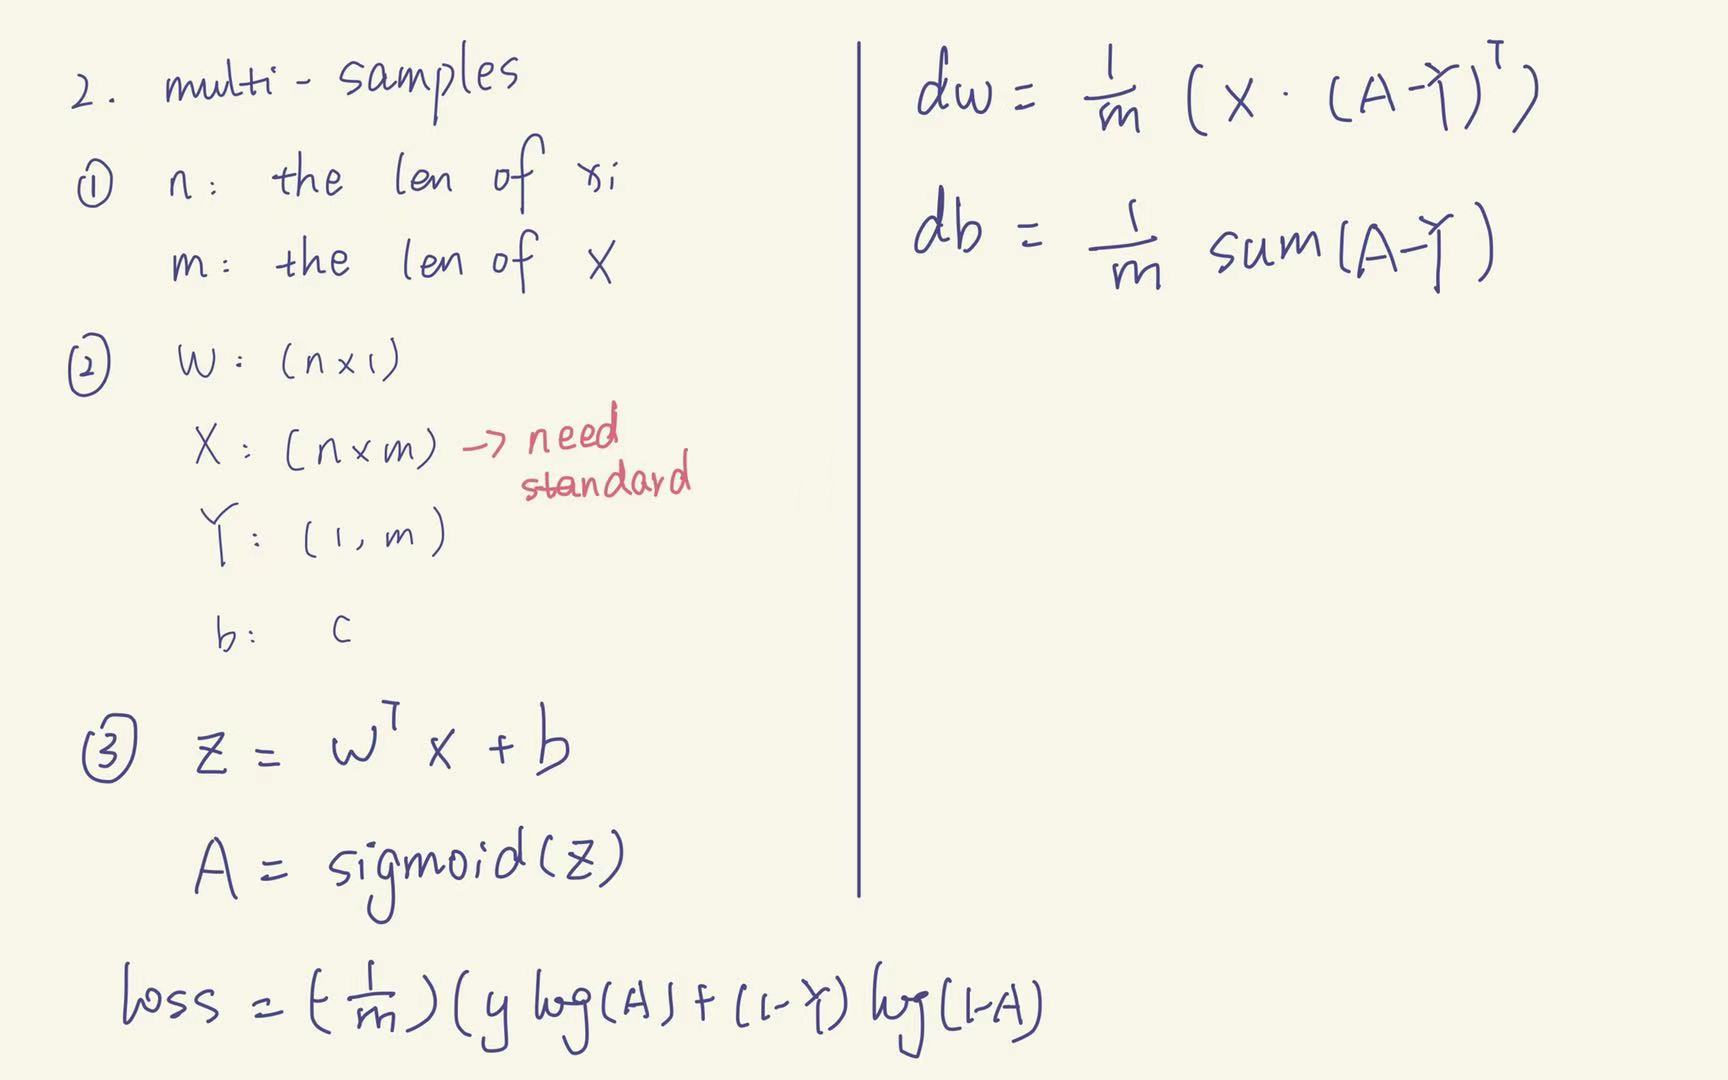 2. multi - samples
① n: the len of xi
m: the len of X
② W: (n×1)
X: (n×m) -> need
standard
Y: (1, m)
b: c
③ z = w^T x + b
A = sigmoid(z)
loss = (-1/m)(y log(A) + (1-Y) log(1-A)
dw = 1/m (X · (A-Y)^T)
db = 1/m sum(A-Y)